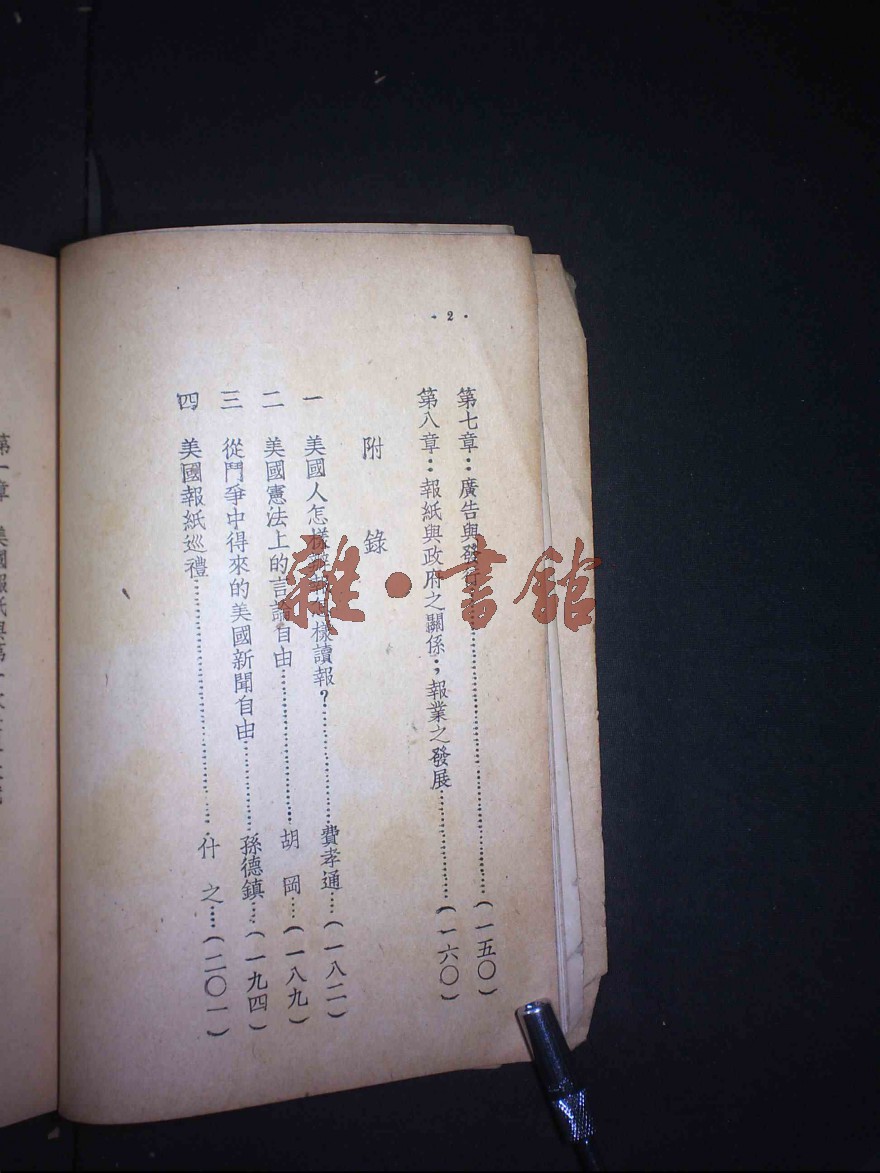 · 2 ·
第七章：廣告與發行……（一五〇）
第八章：報紙與政府之關係；報業之發展……（一六〇）
附錄
一 美國人怎樣辦報怎樣讀報？……費孝通……（一八二）
二 美國憲法上的言論自由……胡岡……（一八九）
三 從鬥爭中得來的美國新聞自由……孫德鎮……（一九四）
四 美國報紙巡禮……什之……（二〇一）
雜·書館
第一章 美國報紙與第一次